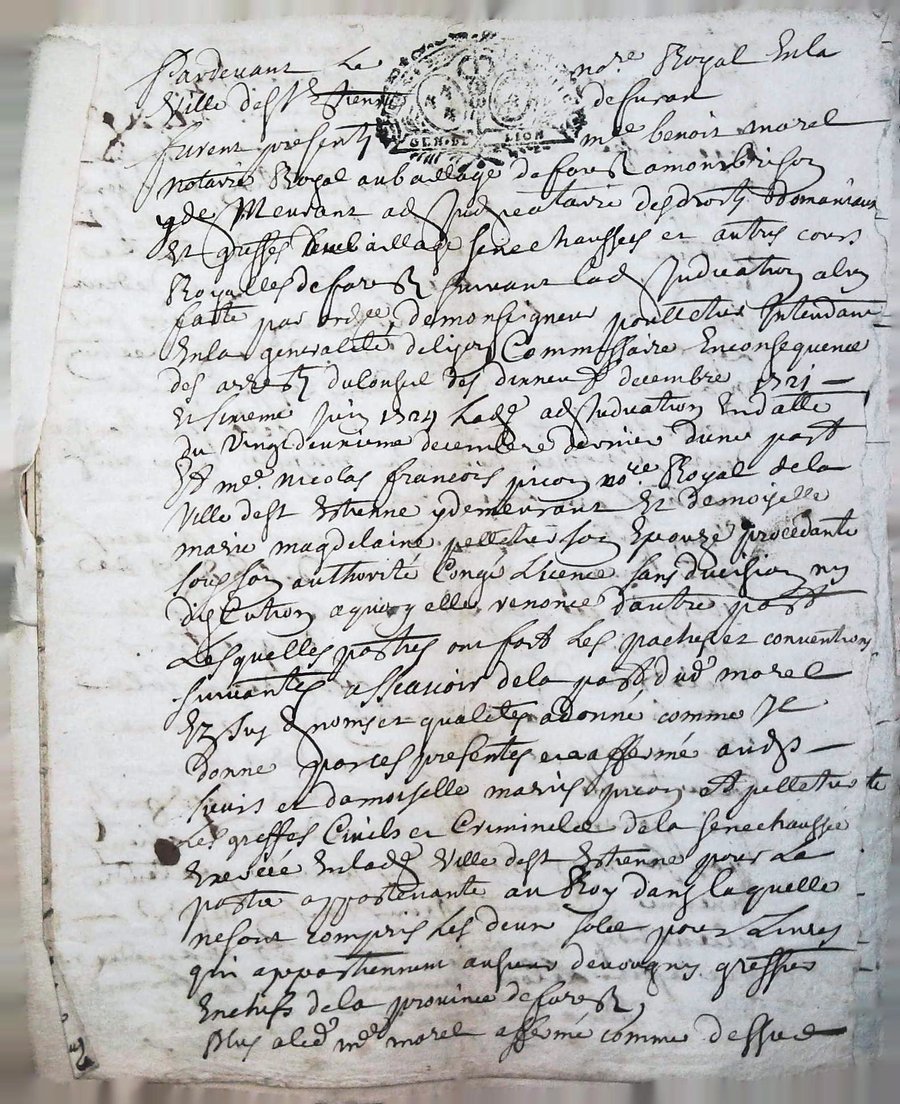 Pardevant Le nore Royal Enla
Ville de St Estienne de furan
furent presents me benoit morel
notaire Royal au bailliage de forest a montbrison
y de Meurant adjudicataire des droits domaniaux
Et greffes du bailliage senechaussees et autres cours
Royalles de forest suivant lad adjudication a luy
faitte par ordce de monseigneur poulletier Intendant
Enla generalité de lyon Commissaire Enconsequence
des arrests du Conseil des dixneuf decembre 1721
Et sixieme juin 1724 Lade adjudication En datte
du Vingtdeuxieme decembre dernier dune part
Et me nicolas francois picon nore Royal de la
Ville de st Estienne y demeurant Et Demoiselle
marie magdelaine pelletier son Epouze procedante
sous son authorité Congé Licence sans division ny
discution a quoy elle renonce dautre part
Lesquelles parties ont fait Les paches et conventions
suivantes assçavoir de la part dud morel
Et sus d noms et qualités a donné comme Il
donne par ces presentes et a affermé aud
sieurs et damoiselle mariés picon et pelletier
Les greffes Civils et Criminels de la senechaussée
Exercée Enlade Ville de st Estienne pour La
partie appartenante au Roy dans laquelle
ne sont compris Les deux sols pour Livres
qui appartiennent au sieur greffier
En chefs de la province de forest
Plus a led me morel affermé comme dessus
GEN. DE LION